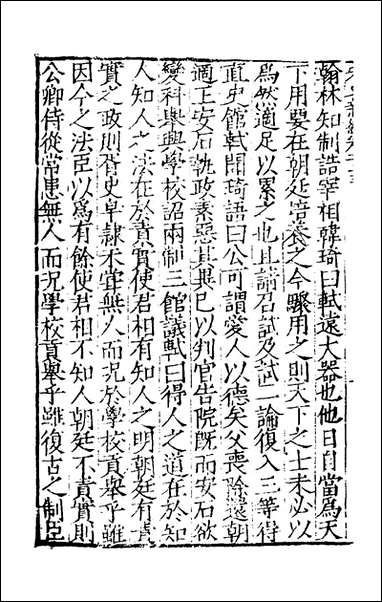 翰林知制誥宰相韓琦曰軾遠大器也他日自當爲天
下用要在朝廷培養之今驟用之則天下之士未必以
爲然適足以累之也且請召試及試二論復入三等得
直史館軾聞琦語曰公可謂愛人以德矣父喪除還朝
適王安石執政素惡其異已以判官告院旣而安石欲
變科舉興學校詔兩制三館議軾曰得人之道在於知
人知人之法在於責實使君相有知人之明朝廷有責
實之政則胥史皁隷未嘗無人而况於學校貢舉乎雖
因今之法臣以爲有餘使君相不知人朝廷不責實則
公卿侍從常患無人而况學校貢舉乎雖復古之制臣